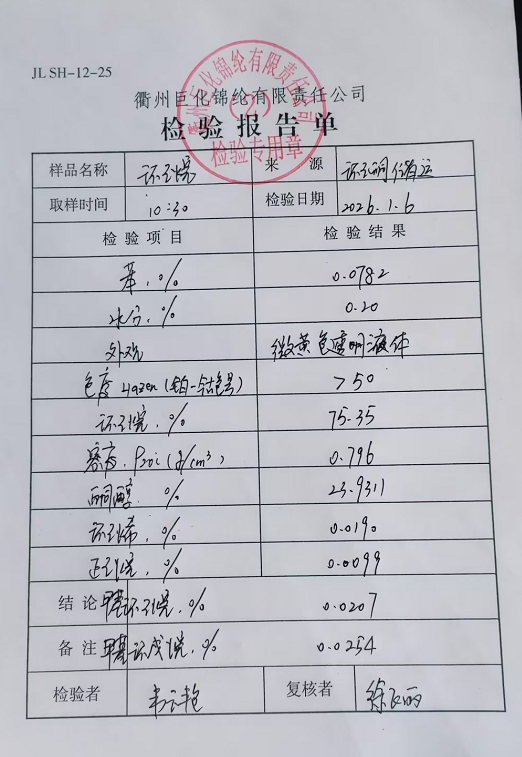 JLSH-12-25
衢州巨化锦纶有限责任公司
检验报告单
检验专用章
样品名称 环己烷 来源 环己酮储运
取样时间 10:30 检验日期 2026.1.6
检验项目 检验结果
苯,% 0.0782
水分,% 0.20
外观 微黄色透明液体
色度 Hazen(铂-钴色号) >50
环己烷,% 75.35
密度,ρ20℃(g/cm³) 0.796
酮醇,% 23.9311
环己烯,% 0.0190
正己烷,% 0.0099
结论 甲基环己烷,% 0.0207
备注 甲基环戊烷,% 0.0254
检验者 复核者